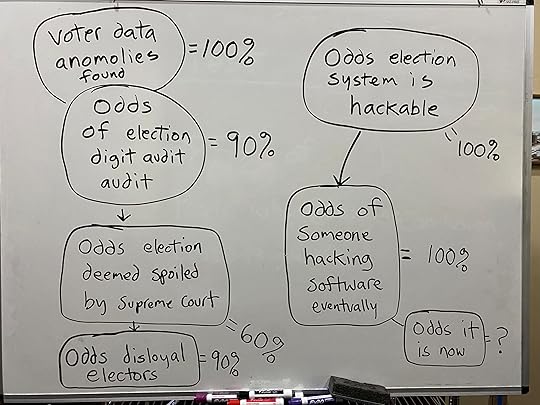 Voter data
anomolies
found
= 100%
Odds
of election
digit audit
audit
= 90%
Odds election
deemed spoiled
by Supreme Court
= 60%
Odds disloyal
electors
= 90%
Odds election
system is
hackable
= 100%
Odds of
Someone
hacking
software
eventually
= 100%
Odds it
is now
= ?